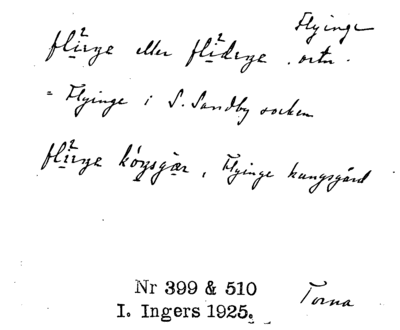 Flyinge
fli̱ŋe eller fli̱dŋe . ortn.
= Flyinge i S. Sandby socken
fli̱ŋe kóŋsgàr, Flyinge kungsgård
Nr 399 & 510
I. Ingers 1925.
Torna